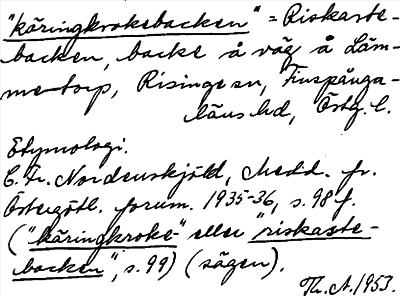 "käringkrokebacken" = Riskaste-
backen, backe å väg å Läm-
metorp, Risinge sn, Finspånga-
läns hd, Östg. l.
Etymologi.
C. Fr. Nordenskjöld, Medd. fr.
Östergötl. fornm. 1935-36, s. 98 f.
("käringkroke-" eller "riskaste-
backen", s. 99) (sägen).
Th. A. 1953.